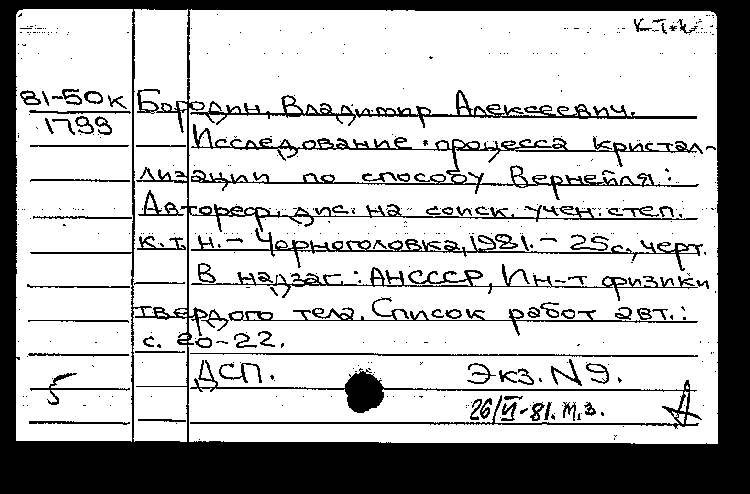 81-50к
1799
Бородин, Владимир Алексеевич.
Исследование процесса кристал-
лизации по способу Вернейля:
Автореф. дис. на соиск. учен. степ.
к.т.н. – Черноголовка, 1981. – 25с., черт.
В надзаг.: АНСССР, Ин-т физики
твердого тела. Список работ авт.:
с. 20-22.
ДСП. Экз. N9.
5
26/VI-81. м.з.